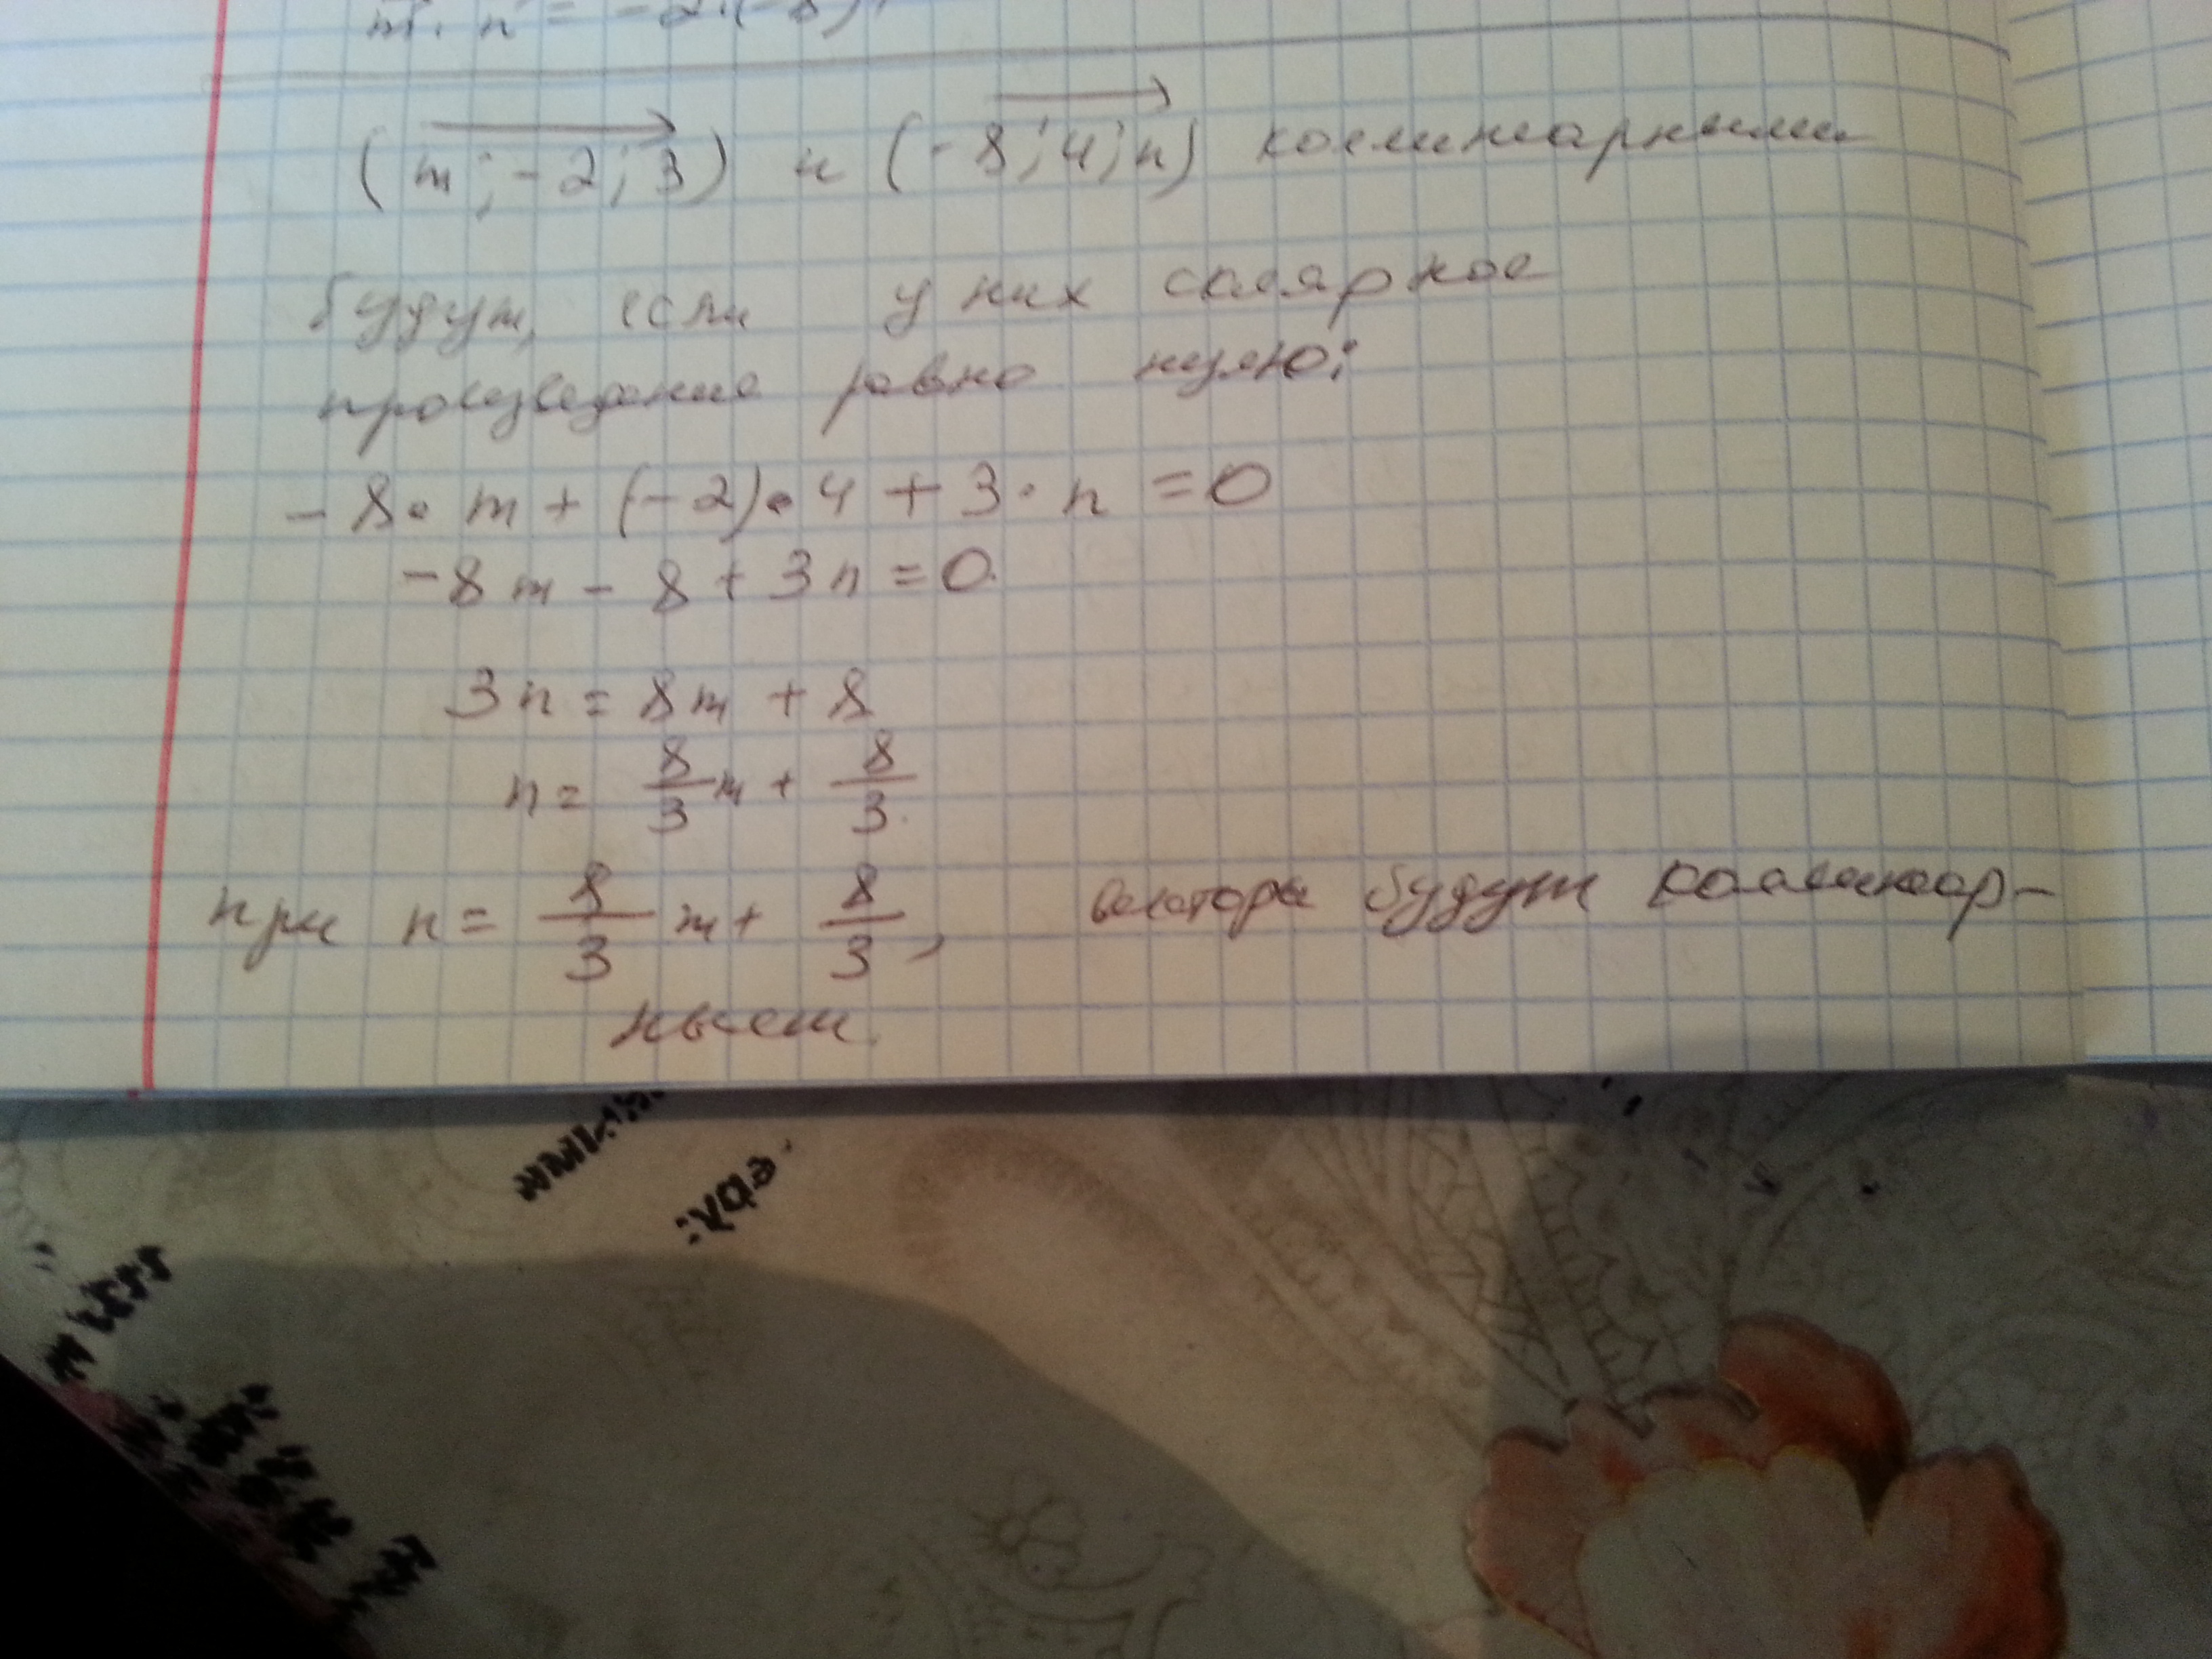 m · n = -2 · (-8)
(m; -2; 3) и (-8; 4; n) коллинеарными
будут, если у них скалярное
произведение равно нулю:
-8 · m + (-2) · 4 + 3 · n = 0
-8m - 8 + 3n = 0
3n = 8m + 8
n = 8/3 m + 8/3
при n = 8/3 m + 8/3, вектора будут коллинеар-
ными